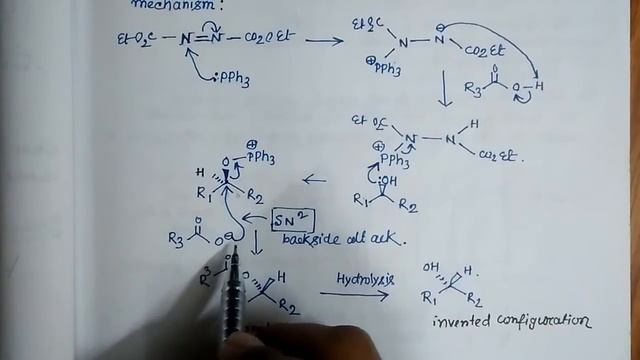 mechanism :
EtO₂C — N = N — CO2OEt
:PPh3
EtO₂C
N — N ⊖
⊕ PPh3
CO2Et
R3
O
O — H
EtO₂C
H
N — N
⊕ PPh3
CO2Et.
:OH
R1
R2
⊕
O — PPh3
H
R1
R2
SN2
backside attack.
R3
O
O ⊖
R3
O
O
H
R2
Hydrolysis
OH
H.
R1
R2
invented configuration